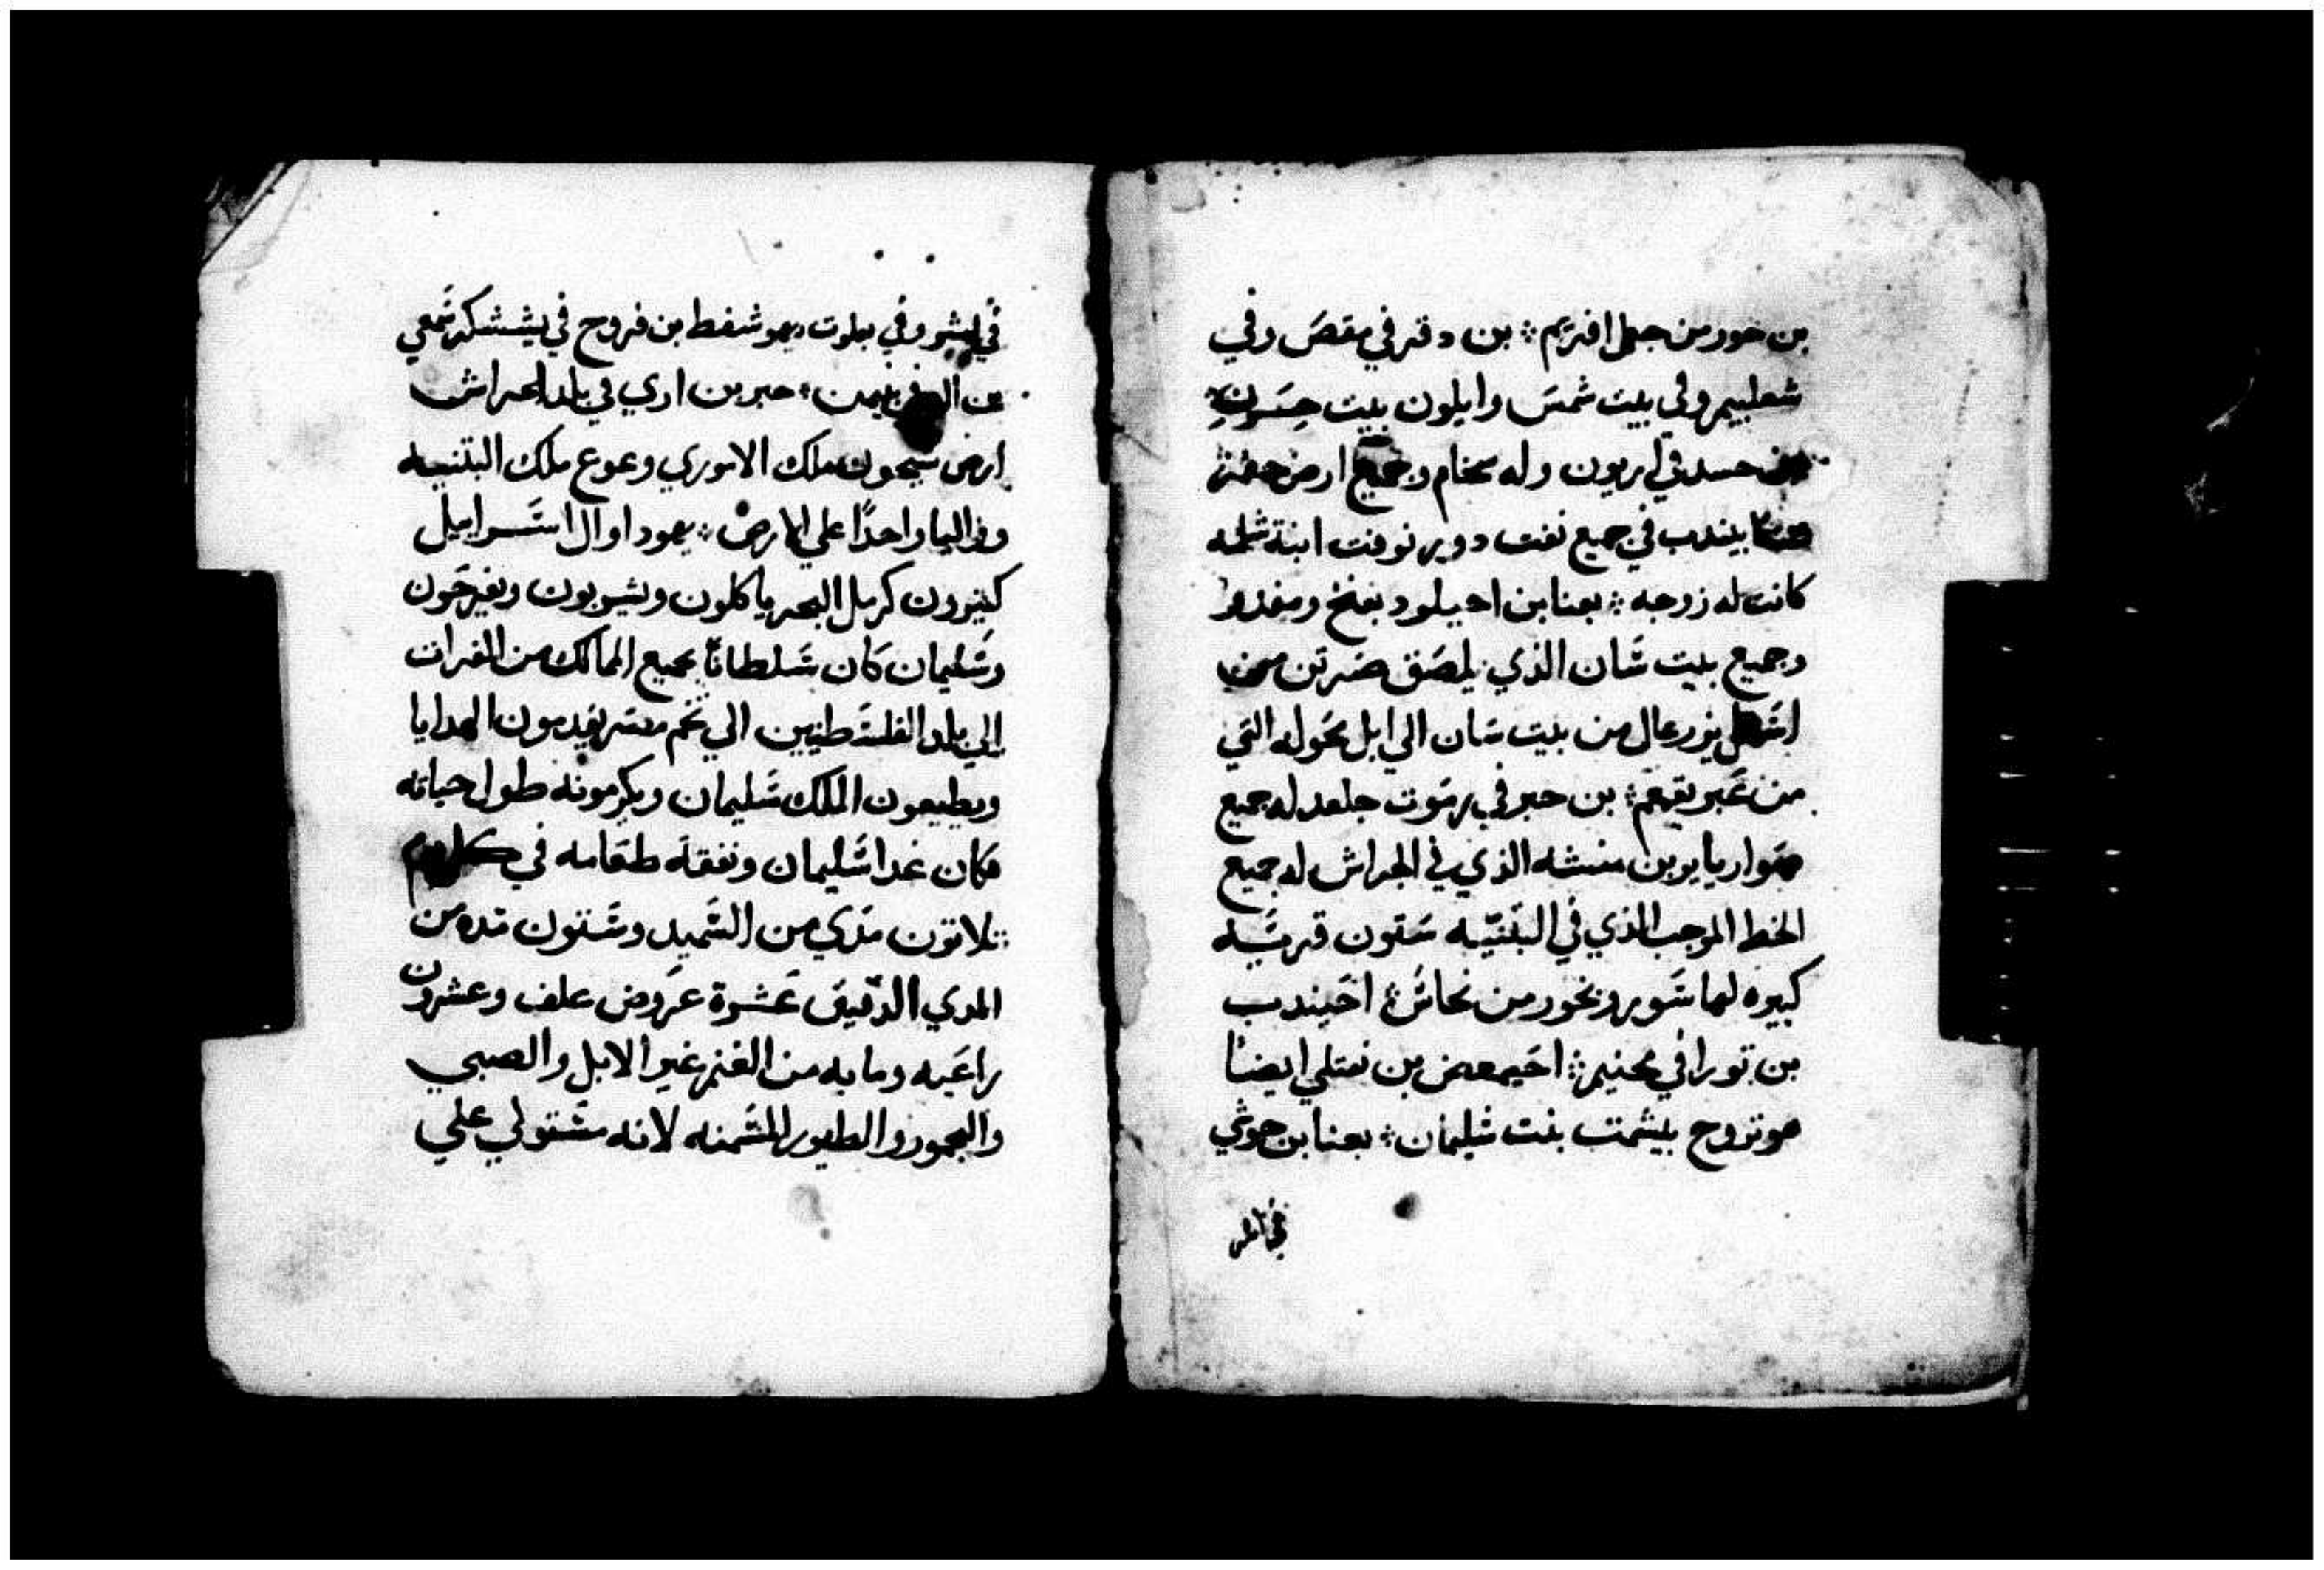 بن خور من جبل افريم ؞ بن دقر في مقصَ وفي
شعلبيم وفي بيت شمسَ وايلون بيت حسَون
حسد في اربون وله سحام وجميع ارض حفر
بيندب في جميع نفت دوير نوفت ابنة شلمه
كانت له زوجه ؞ بعنا بن احيلود بعنخ ومغدو
وجميع بيت شان الذي يلصَق صَرتن من
يزرعال من بيت شان الي ابل محَوله التي
من عَبر يقمعم ؞ بن حبر في رموت جلعد له جميع
حوار يابر بن منسه الذي في الجراش له جميع
الخط الموجب الذي في البتنيّه سَتون قريَه
كبيره لها سَور ونحور من نحاسَ ؞ احَيندب
بن تورا في محنيم ؞ احَيمعص بن نفتلي ايضا
هو تزوج بيشمت بنت سَليمان ؞ بعنا بن حوشي
في اشر
في ايشر وفي بعلوت يهوشفط بن فروح في يششكر شمعي
بن في بنيمن ؞ حبر بن اري في بلد الجراش
ارض سيحون ملك الاموري وعوع ملك البتنيه
واليا واحدًا علي الارض ؞ يهودا وال اسَرايل
كثيرون كرمل البحر ياكلون ويشربون ويفرحَون
وسَليمان كان سَلطانًا بجميع الممالك من الفرات
الي بلد الفلسَطينين الي تخم مصر يقدمون الهدايا
ويطيعون الملك سَليمان ويكرمونه طول حياته
فكان غدا سَليمان ونفقة طعَامه في كل يوم
ثلاثون مَدي من السَميد وسَتون مده من
المدي الدقيق عَشرة عرَوض علف وعشرون
راعَيه ومايه من الغنم غير الابل والصبي
واليحمور والطيور المسَمنه لانه مسَتولي علي